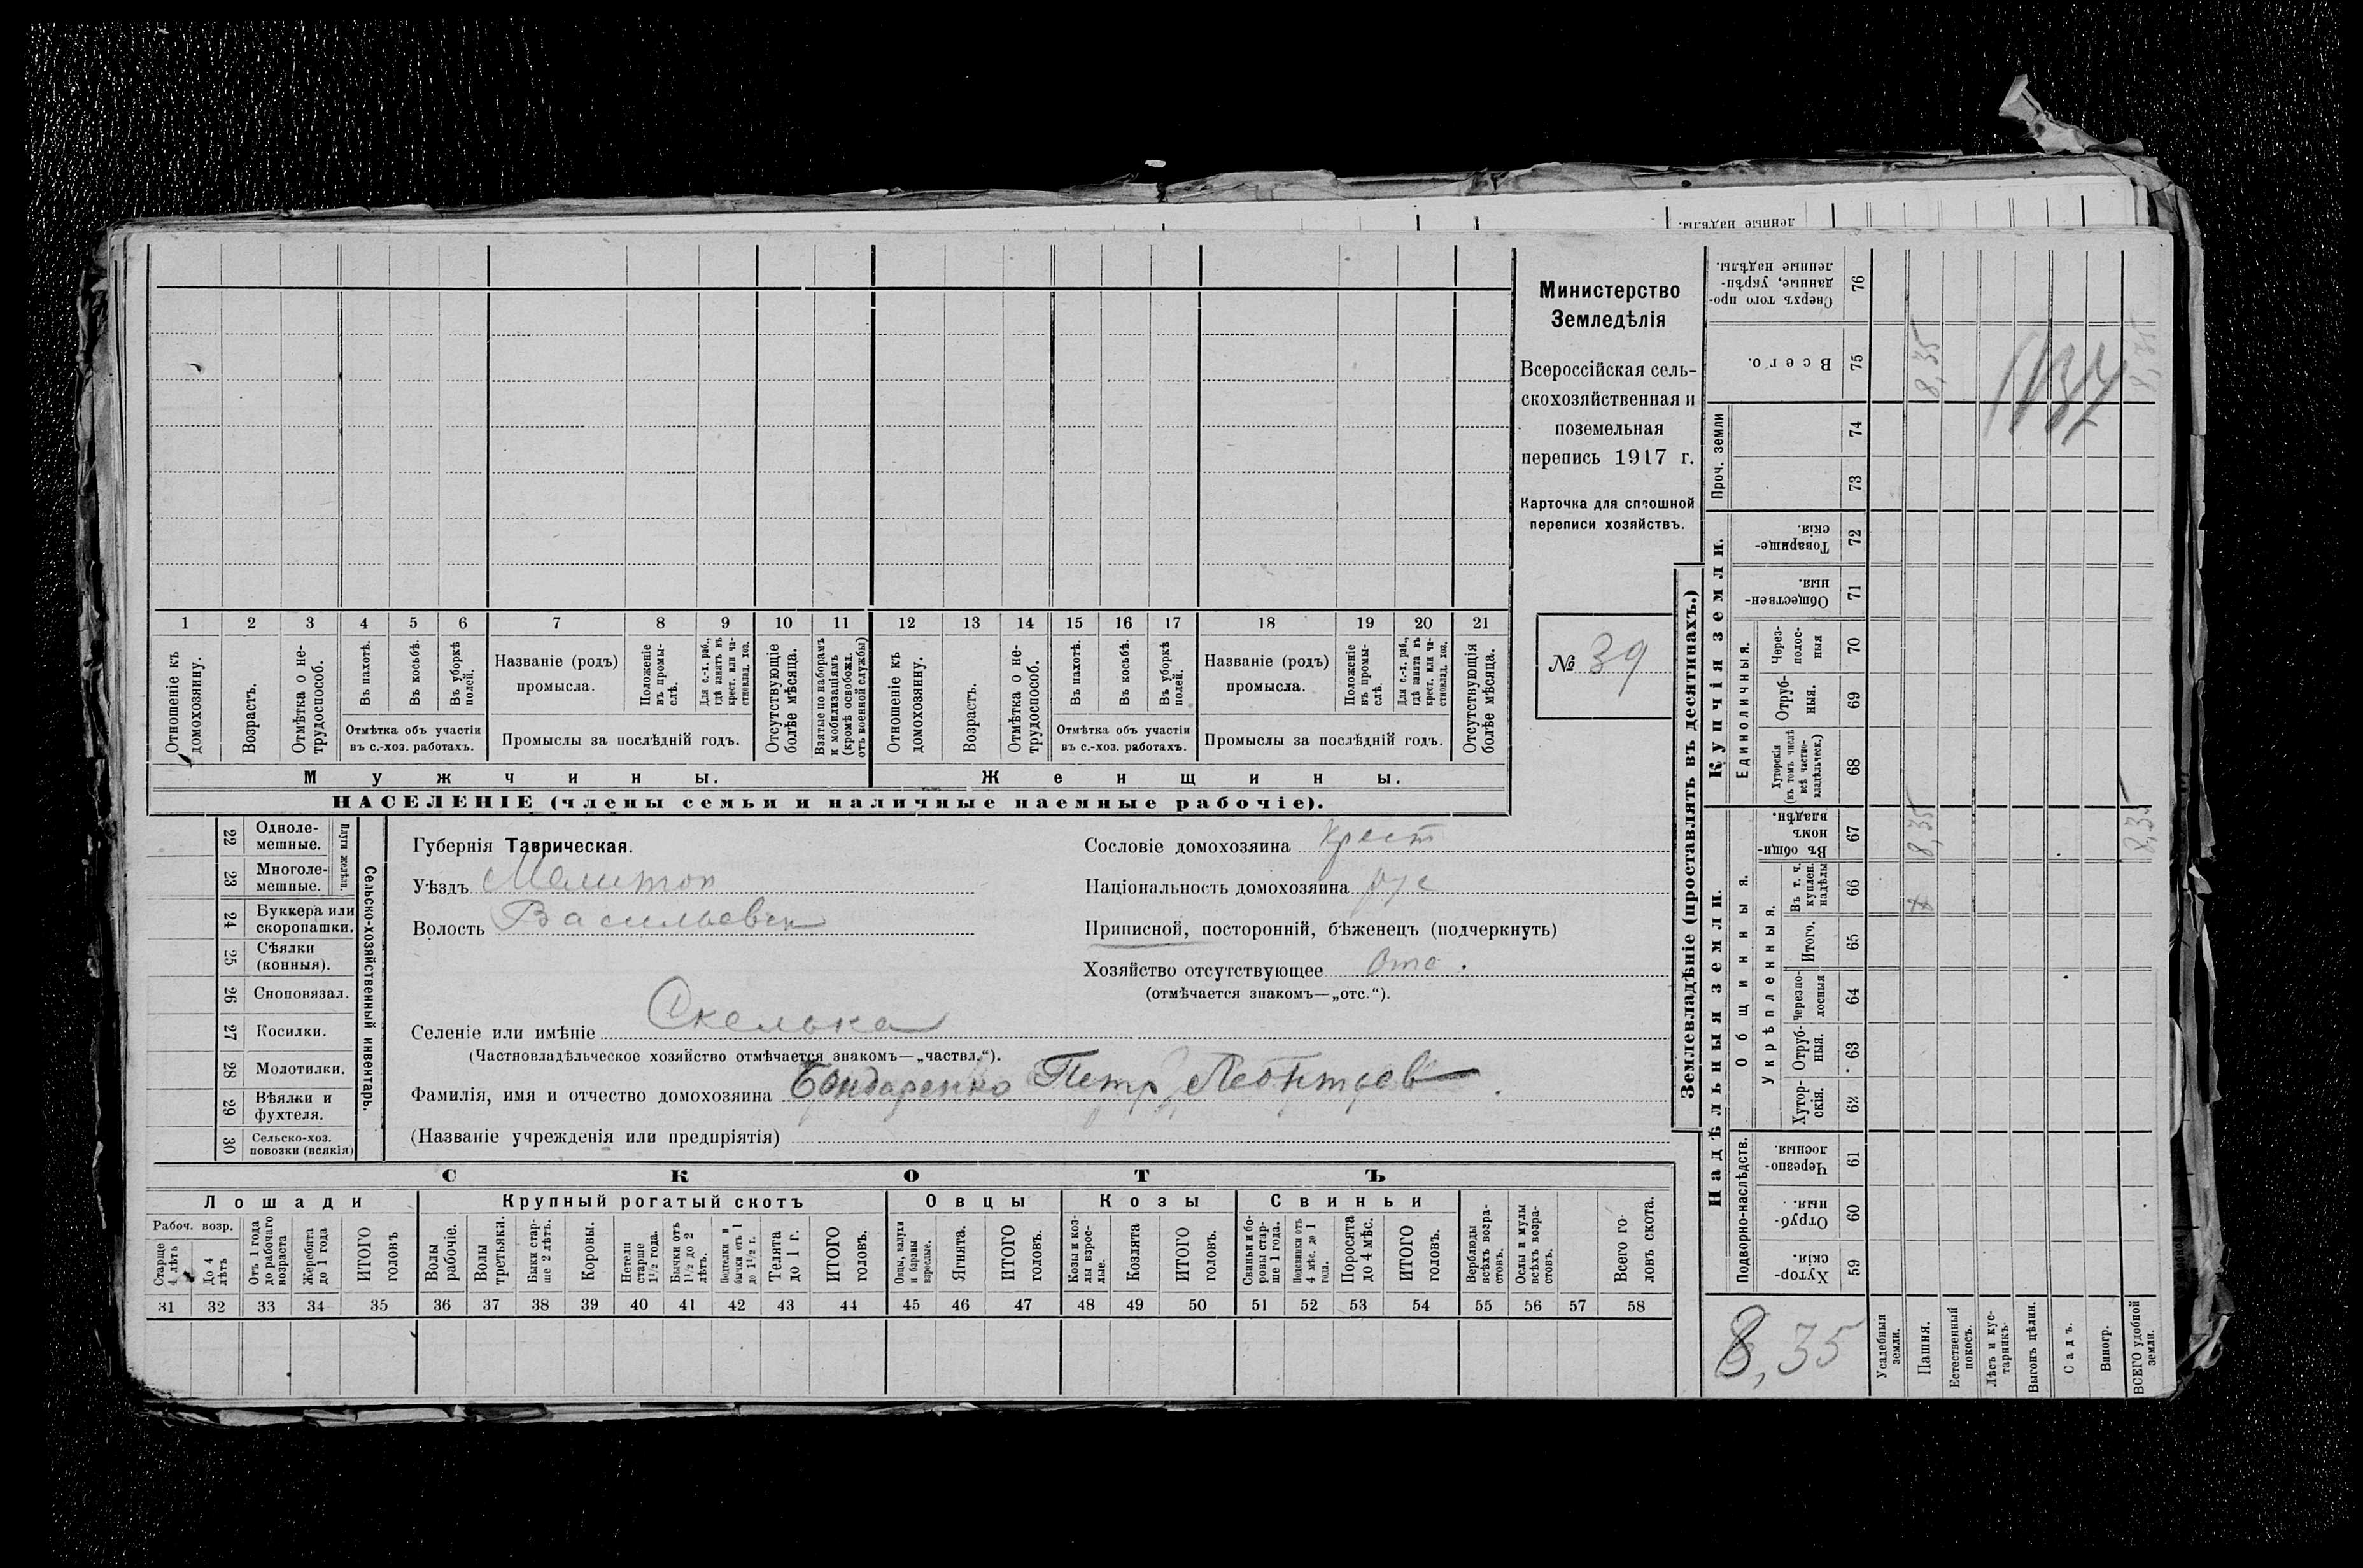 ленные надѣлы.
Министерство
Земледѣлія
Всероссійская сель-
скохозяйственная и
поземельная
перепись 1917 г.
Карточка для сплошной
переписи хозяйствъ.
№ 39
1 2 3 4 5 6 7 8 9 10 11 12 13 14 15 16 17 18 19 20 21
Отношеніе къ домохозяину.
Возрастъ.
Отмѣтка о не-трудоспособ.
Въ пахотѣ.
Въ косьбѣ.
Въ уборкѣ полей.
Отмѣтка объ участіи
въ с.-хоз. работахъ.
Названіе (родъ)
промысла.
Положеніе въ промы-слѣ.
Для с.-х. раб., гдѣ занятъ въ крест. или ча-стновлад. хоз.
Промыслы за послѣдній годъ.
Отсутствующіе болѣе мѣсяца.
Взятые по наборамъ и мобилизаціямъ (кромѣ освобожд. отъ военной службы)
Отношеніе къ домохозяину.
Возрастъ.
Отмѣтка о не-трудоспособ.
Въ пахотѣ.
Въ косьбѣ.
Въ уборкѣ полей.
Отмѣтка объ участіи
въ с.-хоз. работахъ.
Названіе (родъ)
промысла.
Положеніе въ промы-слѣ.
Для с.-х. раб., гдѣ занята въ крест. или ча-стновлад. хоз.
Промыслы за послѣдній годъ.
Отсутствующія болѣе мѣсяца.
Мужчины.
Женщины.
НАСЕЛЕНІЕ (члены семьи и наличные наемные рабочіе).
22 Одноле-мешные.
23 Многоле-мешные.
Плуги желѣзн.
24 Буккера или скоропашки.
25 Сѣялки (конныя).
26 Сноповязал.
27 Косилки.
28 Молотилки.
29 Вѣялки и фухтеля.
30 Сельско-хоз. повозки (всякія)
Сельско-хозяйственный инвентарь.
Губернія Таврическая.
Уѣздъ Мелитоп
Волость Васильевск
Сословіе домохозяина крест
Національность домохозяина рус
Приписной, посторонній, бѣженецъ (подчеркнуть)
Хозяйство отсутствующее Отс.
(отмѣчается знакомъ—„отс.“).
Селеніе или имѣніе Скелька
(Частновладѣльческое хозяйство отмѣчается знакомъ—„частвл.“).
Фамилія, имя и отчество домохозяина Бондаренко Петр Леонтьев
(Названіе учрежденія или предпріятія)
СКОТЪ
Лошади
Крупный рогатый скотъ
Овцы
Козы
Свиньи
Рабоч. возр.
Старше 4 лѣтъ
До 4 лѣтъ
Отъ 1 года до рабочаго возраста
Жеребята до 1 года
ИТОГО головъ
Волы рабочіе.
Волы третьяки.
Быки стар-ше 2 лѣтъ.
Коровы.
Нетели старше 1½ года.
Бычки отъ 1½ до 2 лѣтъ.
Подтелки и бычки отъ 1 до 1½ г.
Телята до 1 г.
ИТОГО головъ.
Овцы, валухи и бараны взрослые.
Ягнята.
ИТОГО головъ.
Козы и коз-лы взрос-лые.
Козлята
ИТОГО головъ.
Свиньи и бо-ровы стар-ше 1 года.
Подсвинки отъ 4 мѣс. до 1 года.
Поросята до 4 мѣс.
ИТОГО головъ.
Верблюды всѣхъ возра-стовъ.
Ослы и мулы всѣхъ возра-стовъ.
Всего го-ловъ скота.
31 32 33 34 35 36 37 38 39 40 41 42 43 44 45 46 47 48 49 50 51 52 53 54 55 56 57 58
Землевладѣніе (проставлять въ десятинахъ.)
Надѣльныя земли.
Купчія земли.
Проч. земли
Подворно-наслѣдств.
Общинныя.
Укрѣпленныя.
Единоличныя.
Хутор-скія. 59
Отруб-ныя. 60
Черезпо-лосныя 61
Хутор-скія. 62
Отруб-ныя. 63
Черезпо-лосныя 64
Итого. 65
Въ т. ч. куплен. надѣлы 66
Въ общи-номъ владѣн. 67
8,35
8,35
Хуторскія (въ томъ числѣ всѣ частно-владѣльческ.) 68
Отруб-ныя. 69
Через-полос-ныя 70
Обществен-ныя. 71
Товарище-скія. 72
73
74
Всего. 75
8,35
8,35
Сверхъ того про-данные, укрѣп-ленные надѣлы. 76
137
8,35
Усадебныя земли.
Пашня.
Естественный покосъ.
Лѣсъ и кус-тарникъ.
Выгонъ цѣлин.
Садъ.
Виногр.
ВСЕГО удобной земли.